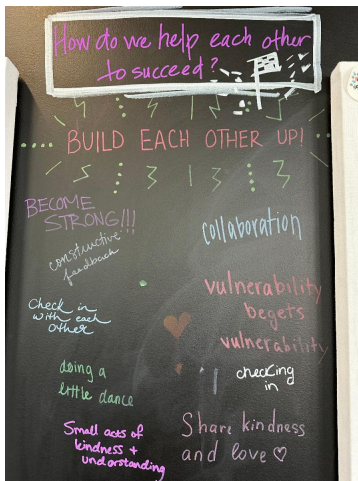 How do we help each other
to succeed?
BUILD EACH OTHER UP!
BECOME
STRONG!!!
constructive
feedback
collaboration
Check in
with each
other
vulnerability
begets
vulnerability
doing a
little dance
checking
in
Small acts of
kindness +
understanding
Share kindness
and love ♡